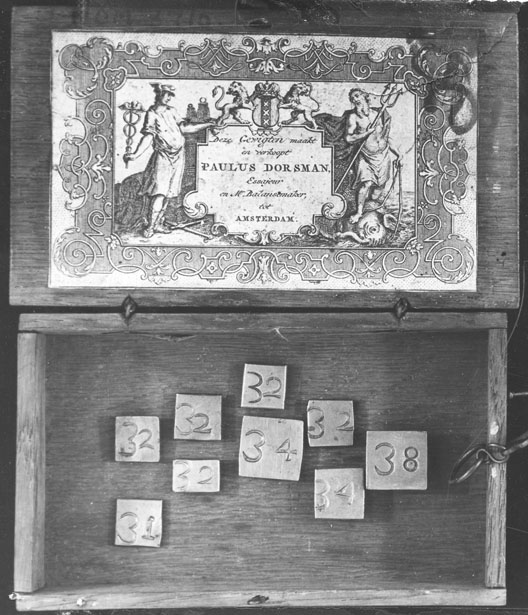 Deze Gewigten maakt
en verkoopt
PAULUS DORSMAN,
Essajeur
en Mr. Balansemaker,
tot
AMSTERDAM.
32
32
32
32
34
38
32
34
31